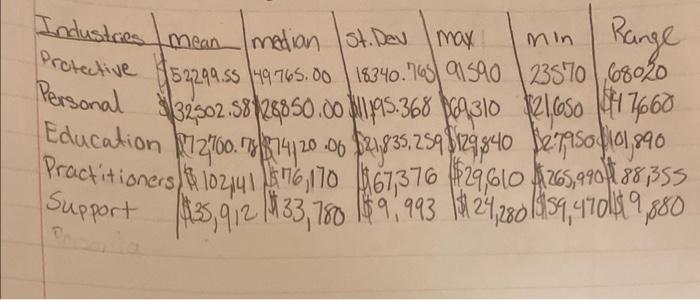 Industries mean median St.Dev max min Range
Protective $52299.55 49765.00 18340.765 91590 23570 68020
Personal $32502.58 $28850.00 $11195.368 $69,310 $21,650 $47,660
Education $72700.78 $74120.00 $21,835.259 $129,840 $27,950 $101,890
Practitioners $102,141 $76,170 $67,376 $29,610 $265,990 $88,355
Support $35,912 $33,780 $9,993 $24,280 $59,470 $9,880